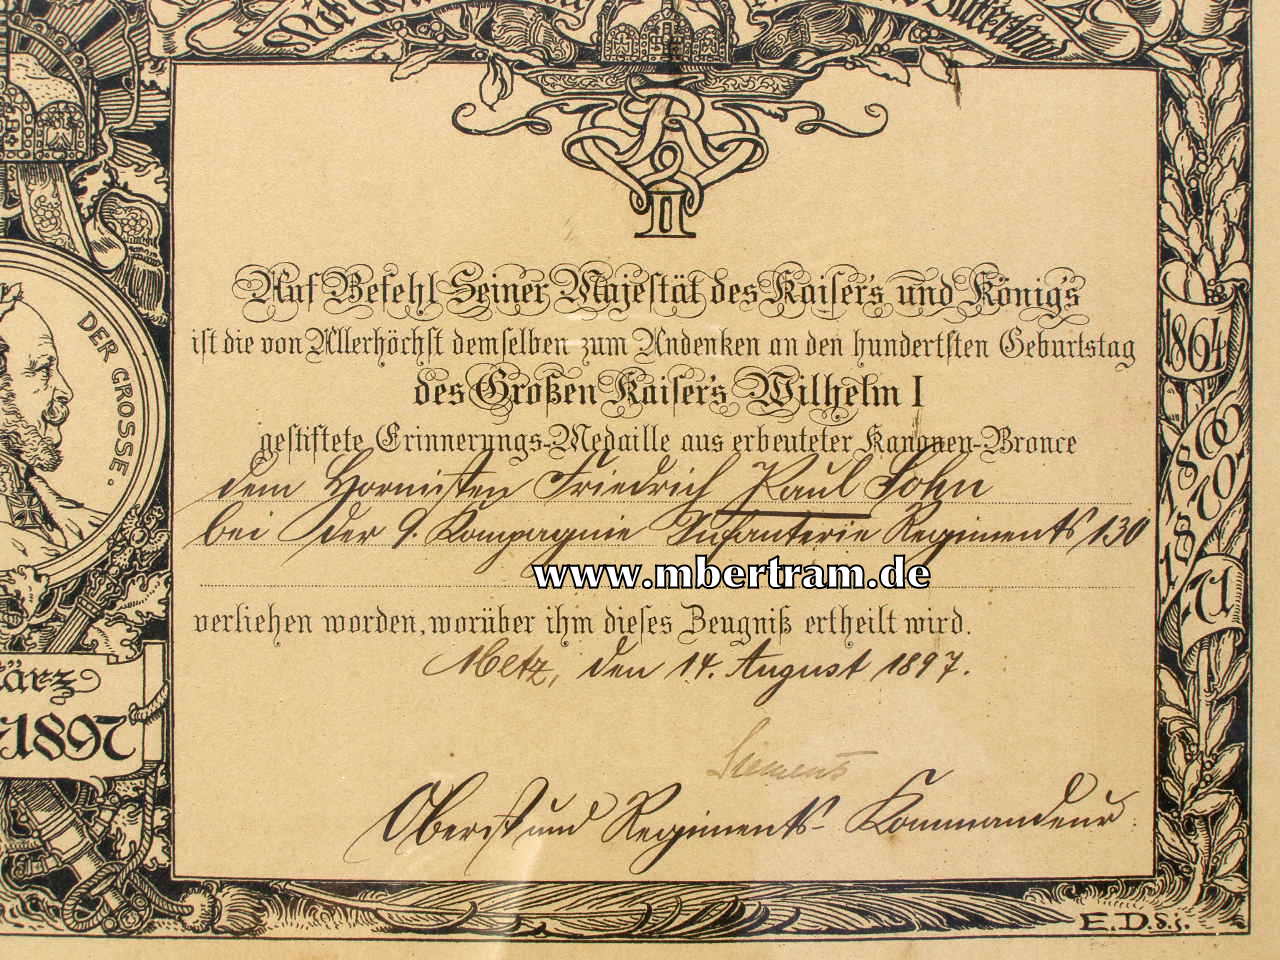 Mit Vaterland
DER GROSSE.
Auf Befehl Seiner Majestät des Kaiser's und König's
ist die von Allerhöchst demselben zum Andenken an den hundertsten Geburtstag
des Großen Kaiser's Wilhelm I
gestiftete Erinnerungs-Medaille aus erbeuteter Kanonen-Bronce
dem Hornisten Friedrich Paul John
bei der 9. Kompagnie Infanterie Regiments 130
www.mbertram.de
verliehen worden, worüber ihm dieses Zeugniß ertheilt wird.
Metz, den 14. August 1897.
Siemens
Oberst und Regiments-Kommandeur.
1864
1866
1870
U. 71
März
1897
E.D.d.j.